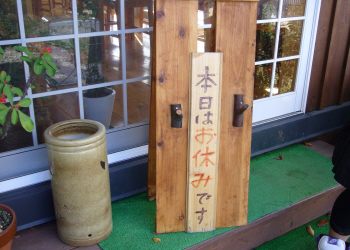 本日はお休みです。